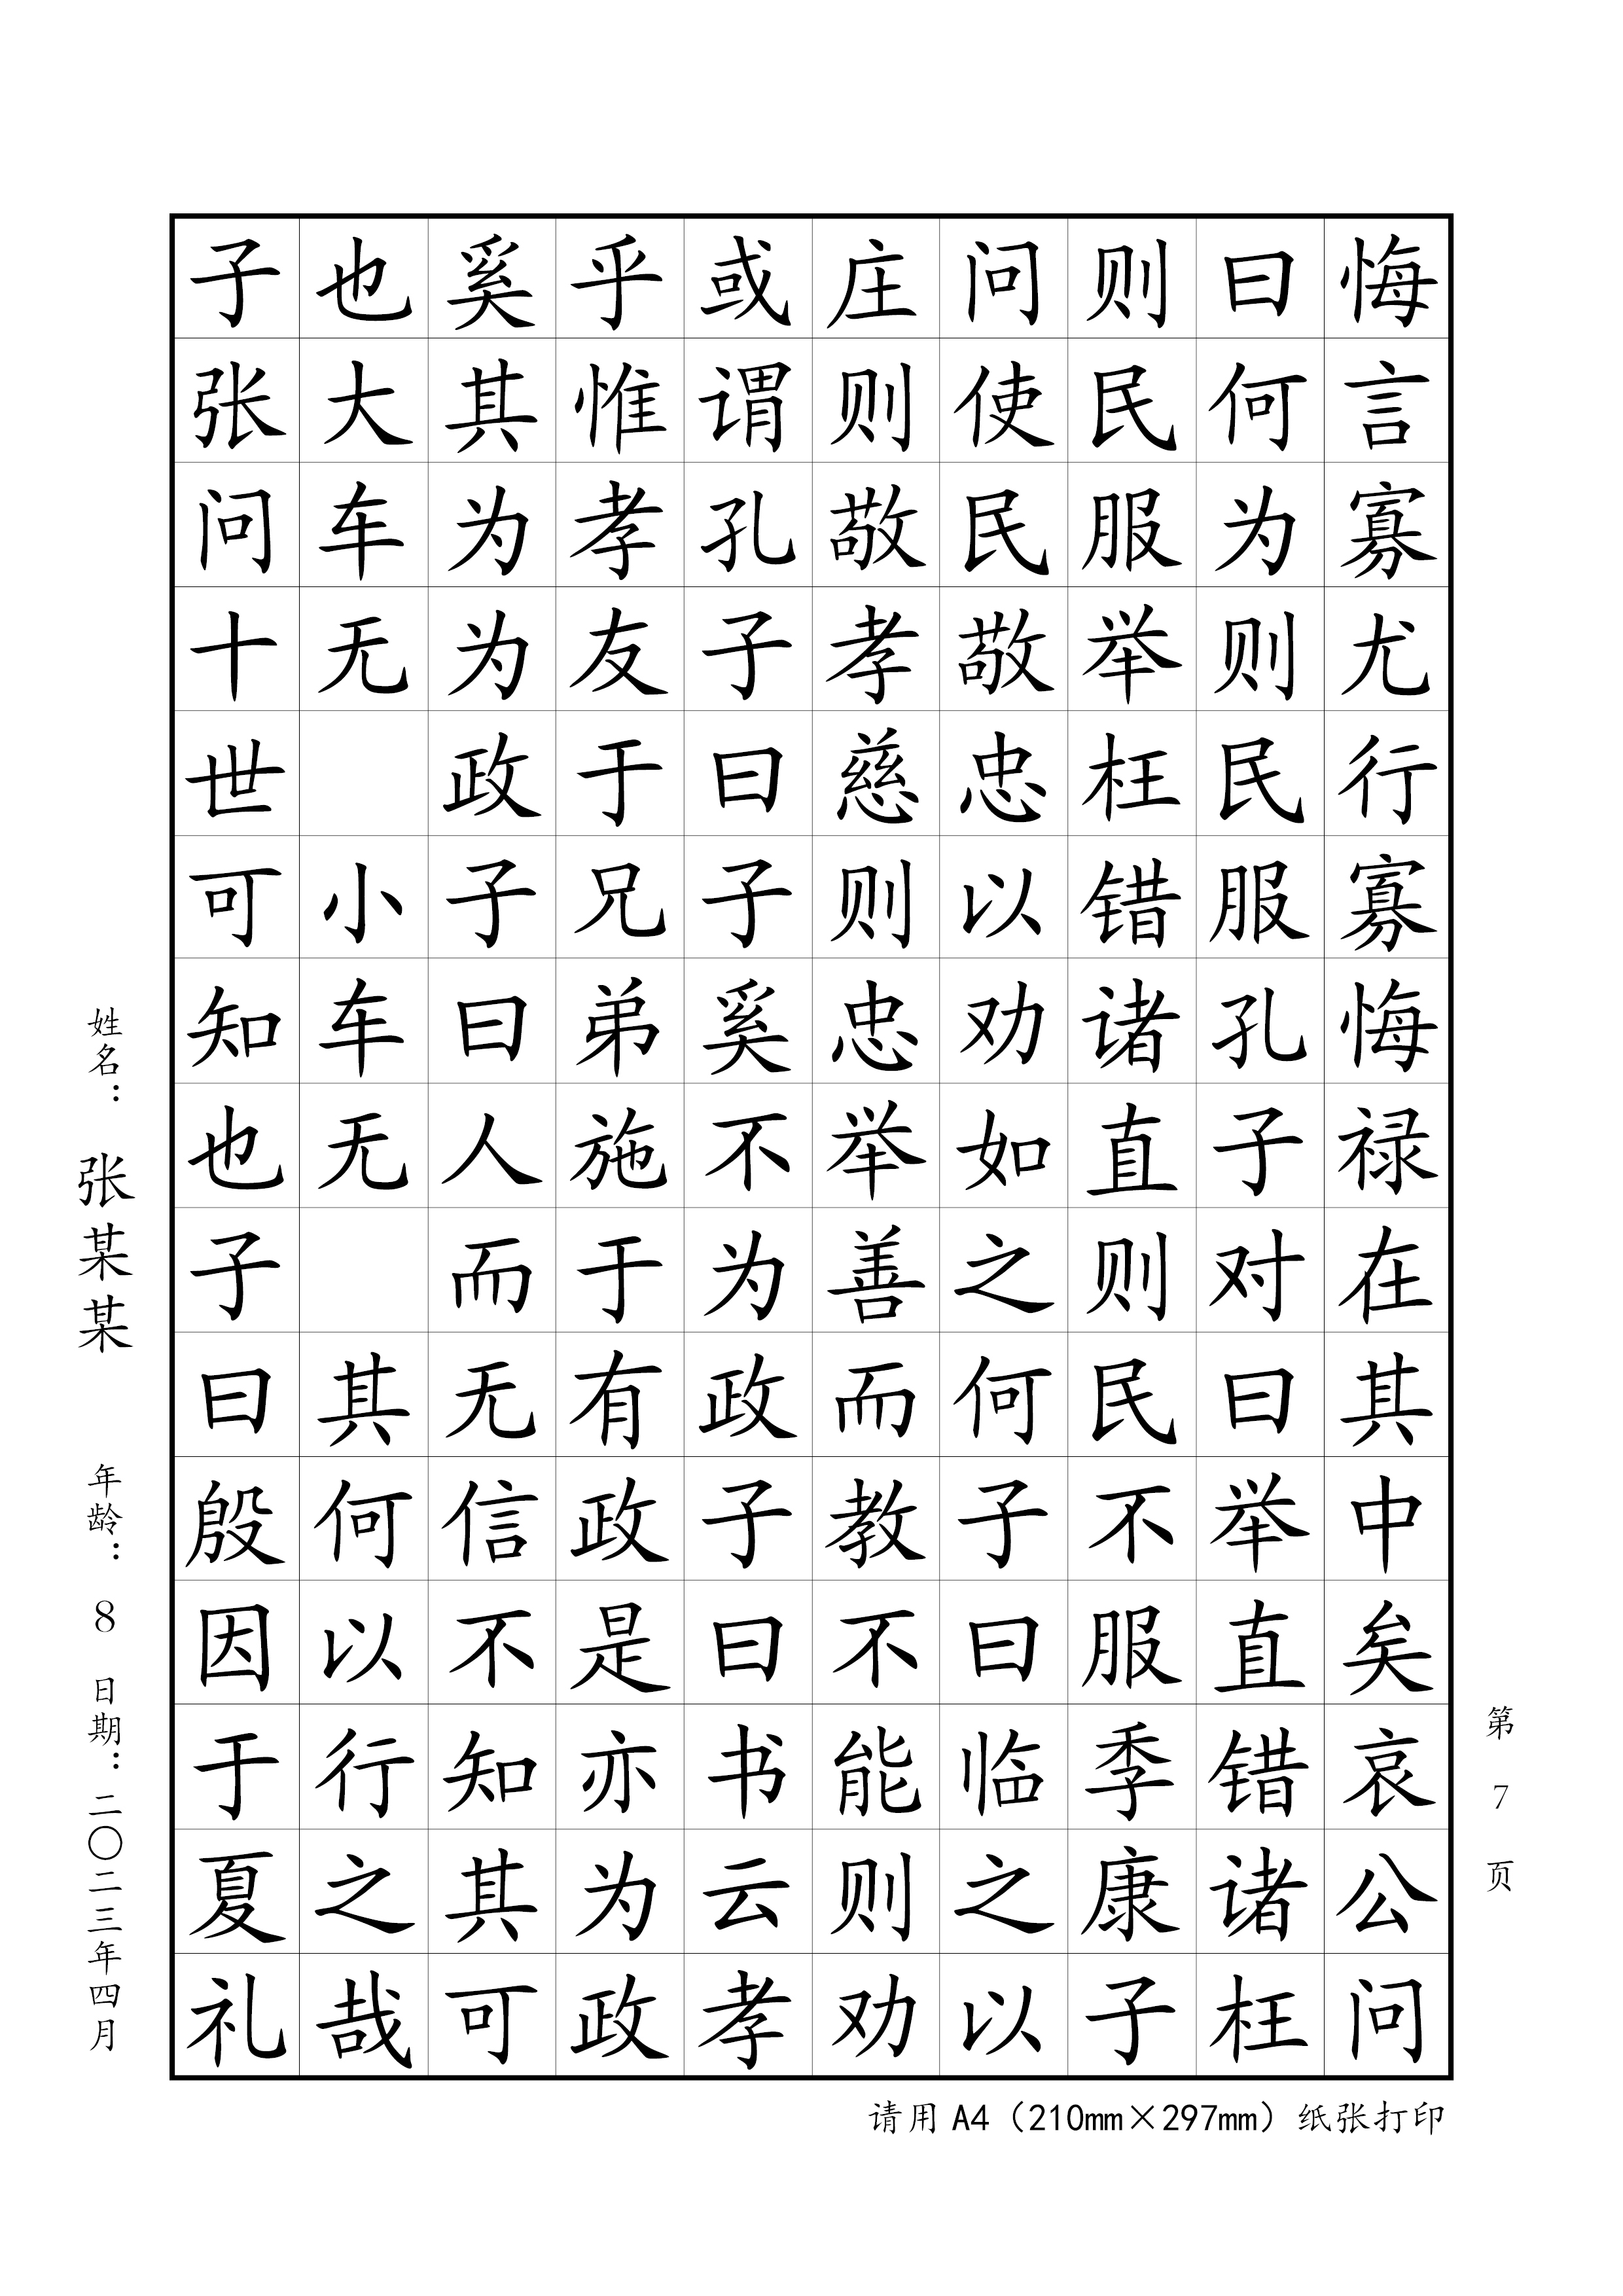 悔言寡尤行寡悔禄在其中矣哀公问
曰何为则民服孔子对曰举直错诸枉
则民服举枉错诸直则民不服季康子
问使民敬忠以劝如之何子曰临之以
庄则敬孝慈则忠举善而教不能则劝
或谓孔子曰子奚不为政子曰书云孝
乎惟孝友于兄弟施于有政是亦为政
奚其为为政子曰人而无信不知其可
也大车无 小车无 其何以行之哉
子张问十世可知也子曰殷因于夏礼
第 7 页
姓名： 张某某 年龄： 8 日期：二〇二三年四月
请用 A4（210mm×297mm）纸张打印